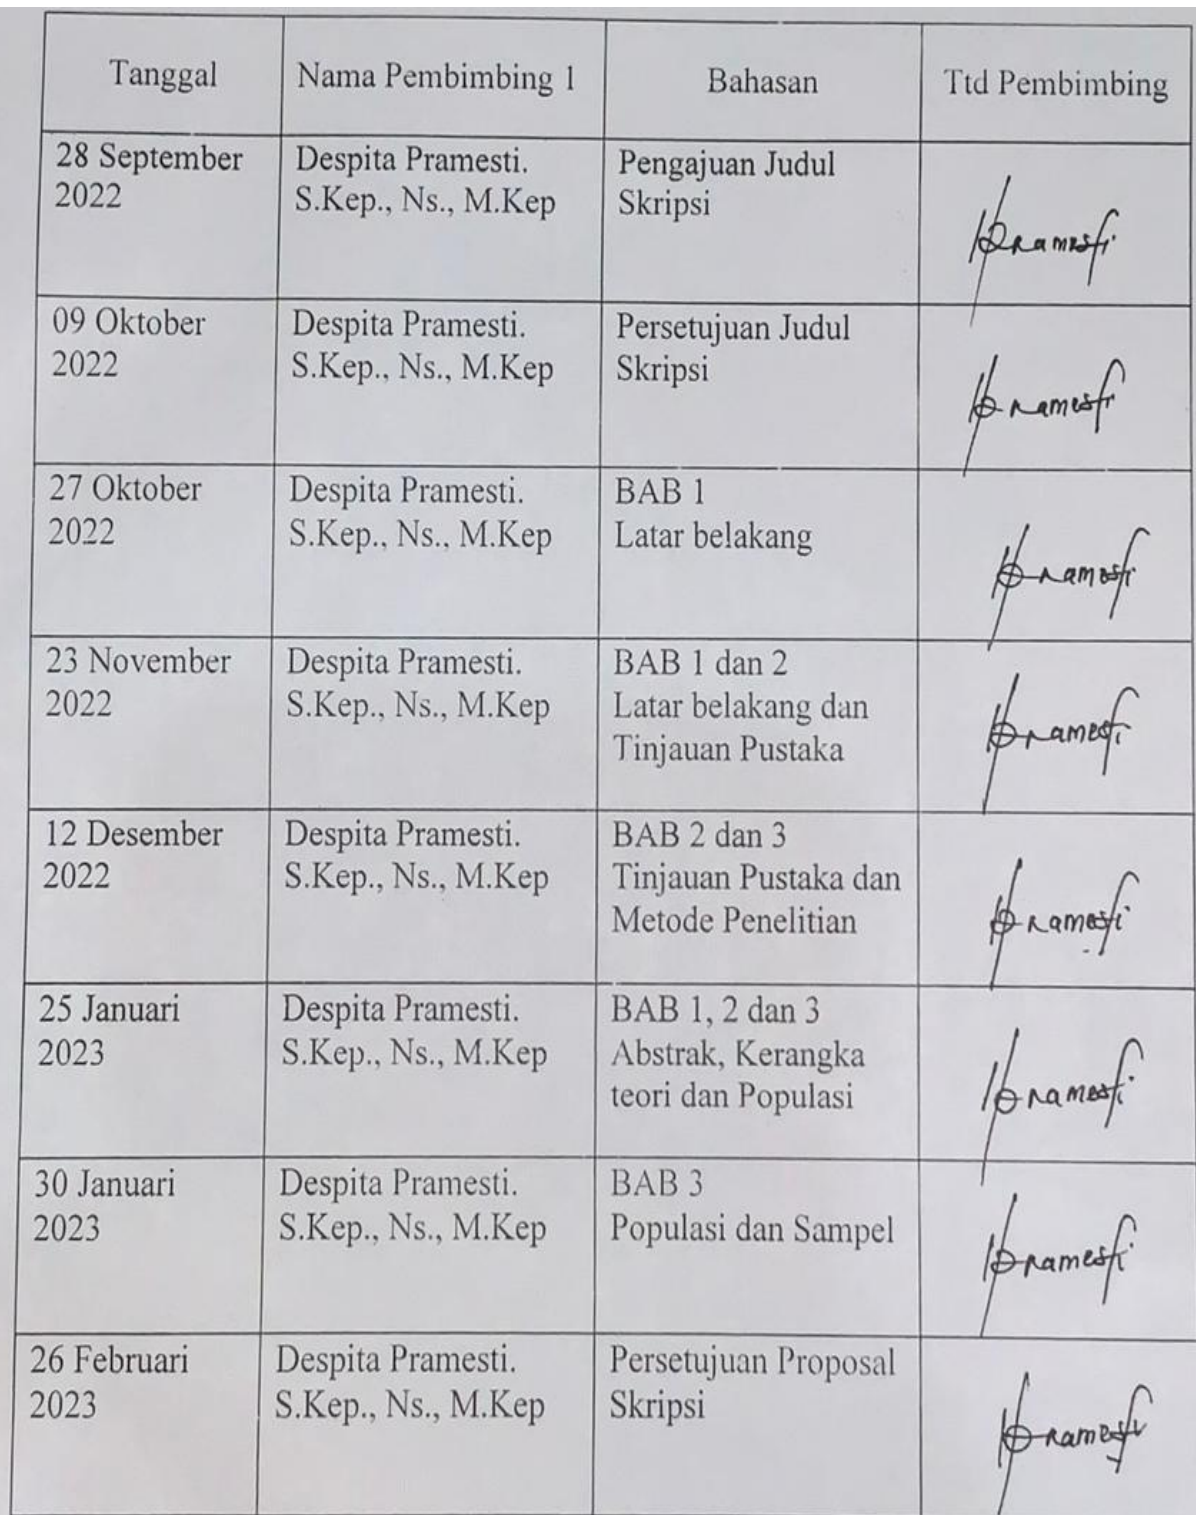 Tanggal
Nama Pembimbing 1
Bahasan
Ttd Pembimbing
28 September
2022
Despita Pramesti.
S.Kep., Ns., M.Kep
Pengajuan Judul
Skripsi
Pramesti
09 Oktober
2022
Despita Pramesti.
S.Kep., Ns., M.Kep
Persetujuan Judul
Skripsi
Pramesti
27 Oktober
2022
Despita Pramesti.
S.Kep., Ns., M.Kep
BAB 1
Latar belakang
Pramesti
23 November
2022
Despita Pramesti.
S.Kep., Ns., M.Kep
BAB 1 dan 2
Latar belakang dan
Tinjauan Pustaka
Pramesti
12 Desember
2022
Despita Pramesti.
S.Kep., Ns., M.Kep
BAB 2 dan 3
Tinjauan Pustaka dan
Metode Penelitian
Pramesti
25 Januari
2023
Despita Pramesti.
S.Kep., Ns., M.Kep
BAB 1, 2 dan 3
Abstrak, Kerangka
teori dan Populasi
Pramesti
30 Januari
2023
Despita Pramesti.
S.Kep., Ns., M.Kep
BAB 3
Populasi dan Sampel
Pramesti
26 Februari
2023
Despita Pramesti.
S.Kep., Ns., M.Kep
Persetujuan Proposal
Skripsi
Pramesti